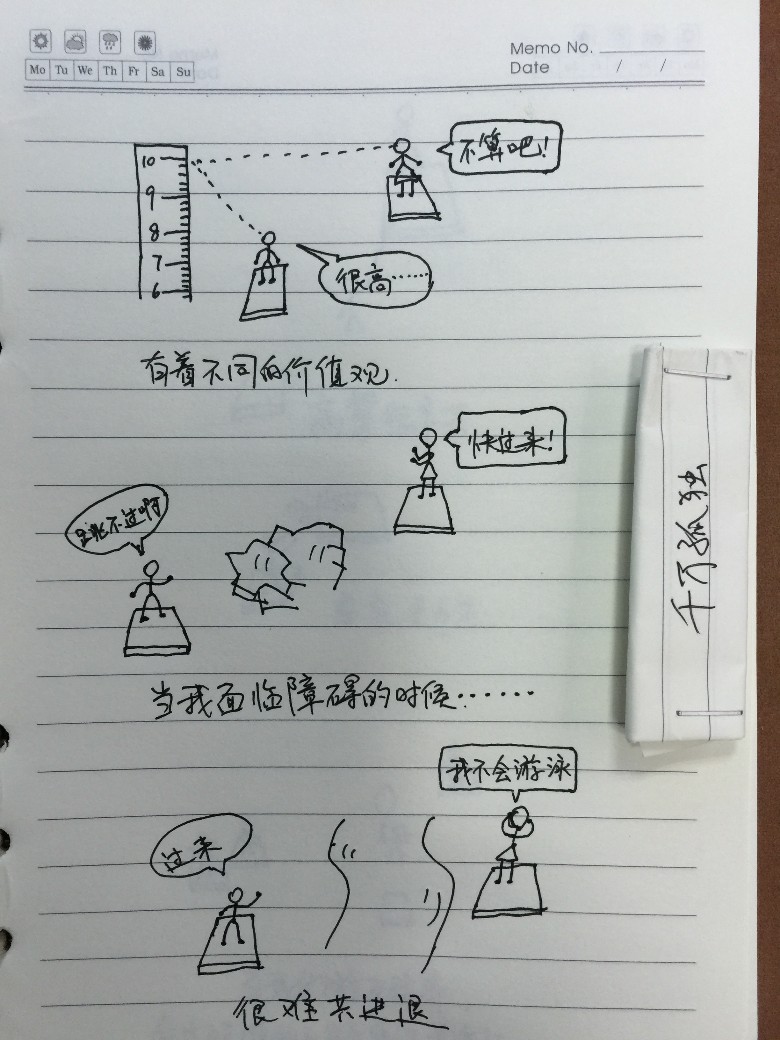 Memo No.
Mo Tu We Th Fr Sa Su
Date / /
10
9
8
7
6
不算吧!
很高……
有着不同的价值观.
快过来!
跳不过啊
千万孤独
当我面临障碍的时候……
我不会游泳
过来
很难共进退